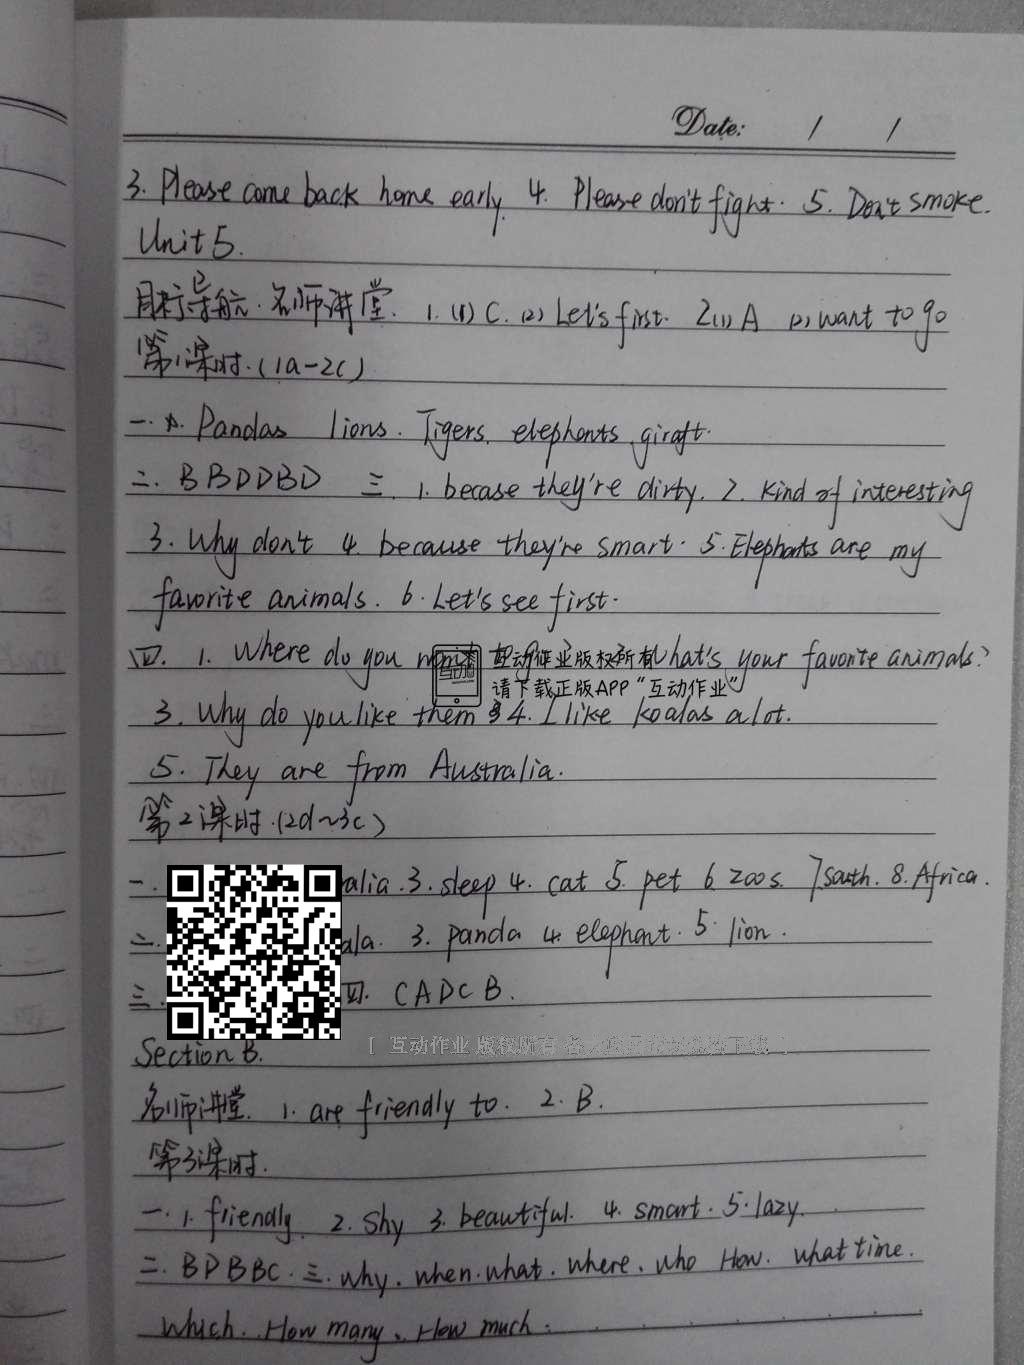 Date: / /
3. Please come back home early. 4. Please don't fight. 5. Don't smoke.
Unit 5.
目标导航.名师讲堂. 1. (1) C. (2) Let's first. 2(1) A (2) want to go
第1课时.(1a-2c)
一. Pandas lions. Tigers. elephants giraft.
二. BBDDBD 三. 1. becase they're dirty. 2. kind of interesting
3. Why don't 4. because they're smart. 5. Elephants are my
favorite animals. 6. Let's see first.
四. 1. Where do you 互动作业版权所有 what's your favorite animals?
请下载正版APP“互动作业”
3. Why do you like them 4. I like koalas a lot.
5. They are from Australia.
第2课时.(2d~3c)
一. alia. 3. sleep 4. cat 5. pet 6. zoos. 7. south. 8. Africa.
二. ala. 3. panda 4. elephant. 5. lion.
三. 四. CADCB.
[ 互动作业 版权所有
Section B.
名师讲堂. 1. are friendly to. 2. B.
第3课时.
一. 1. friendly. 2. shy 3. beautiful. 4. smart. 5. lazy.
二. BDBBC. 三. why. when. what. where. who How. what time.
which. How many. How much.